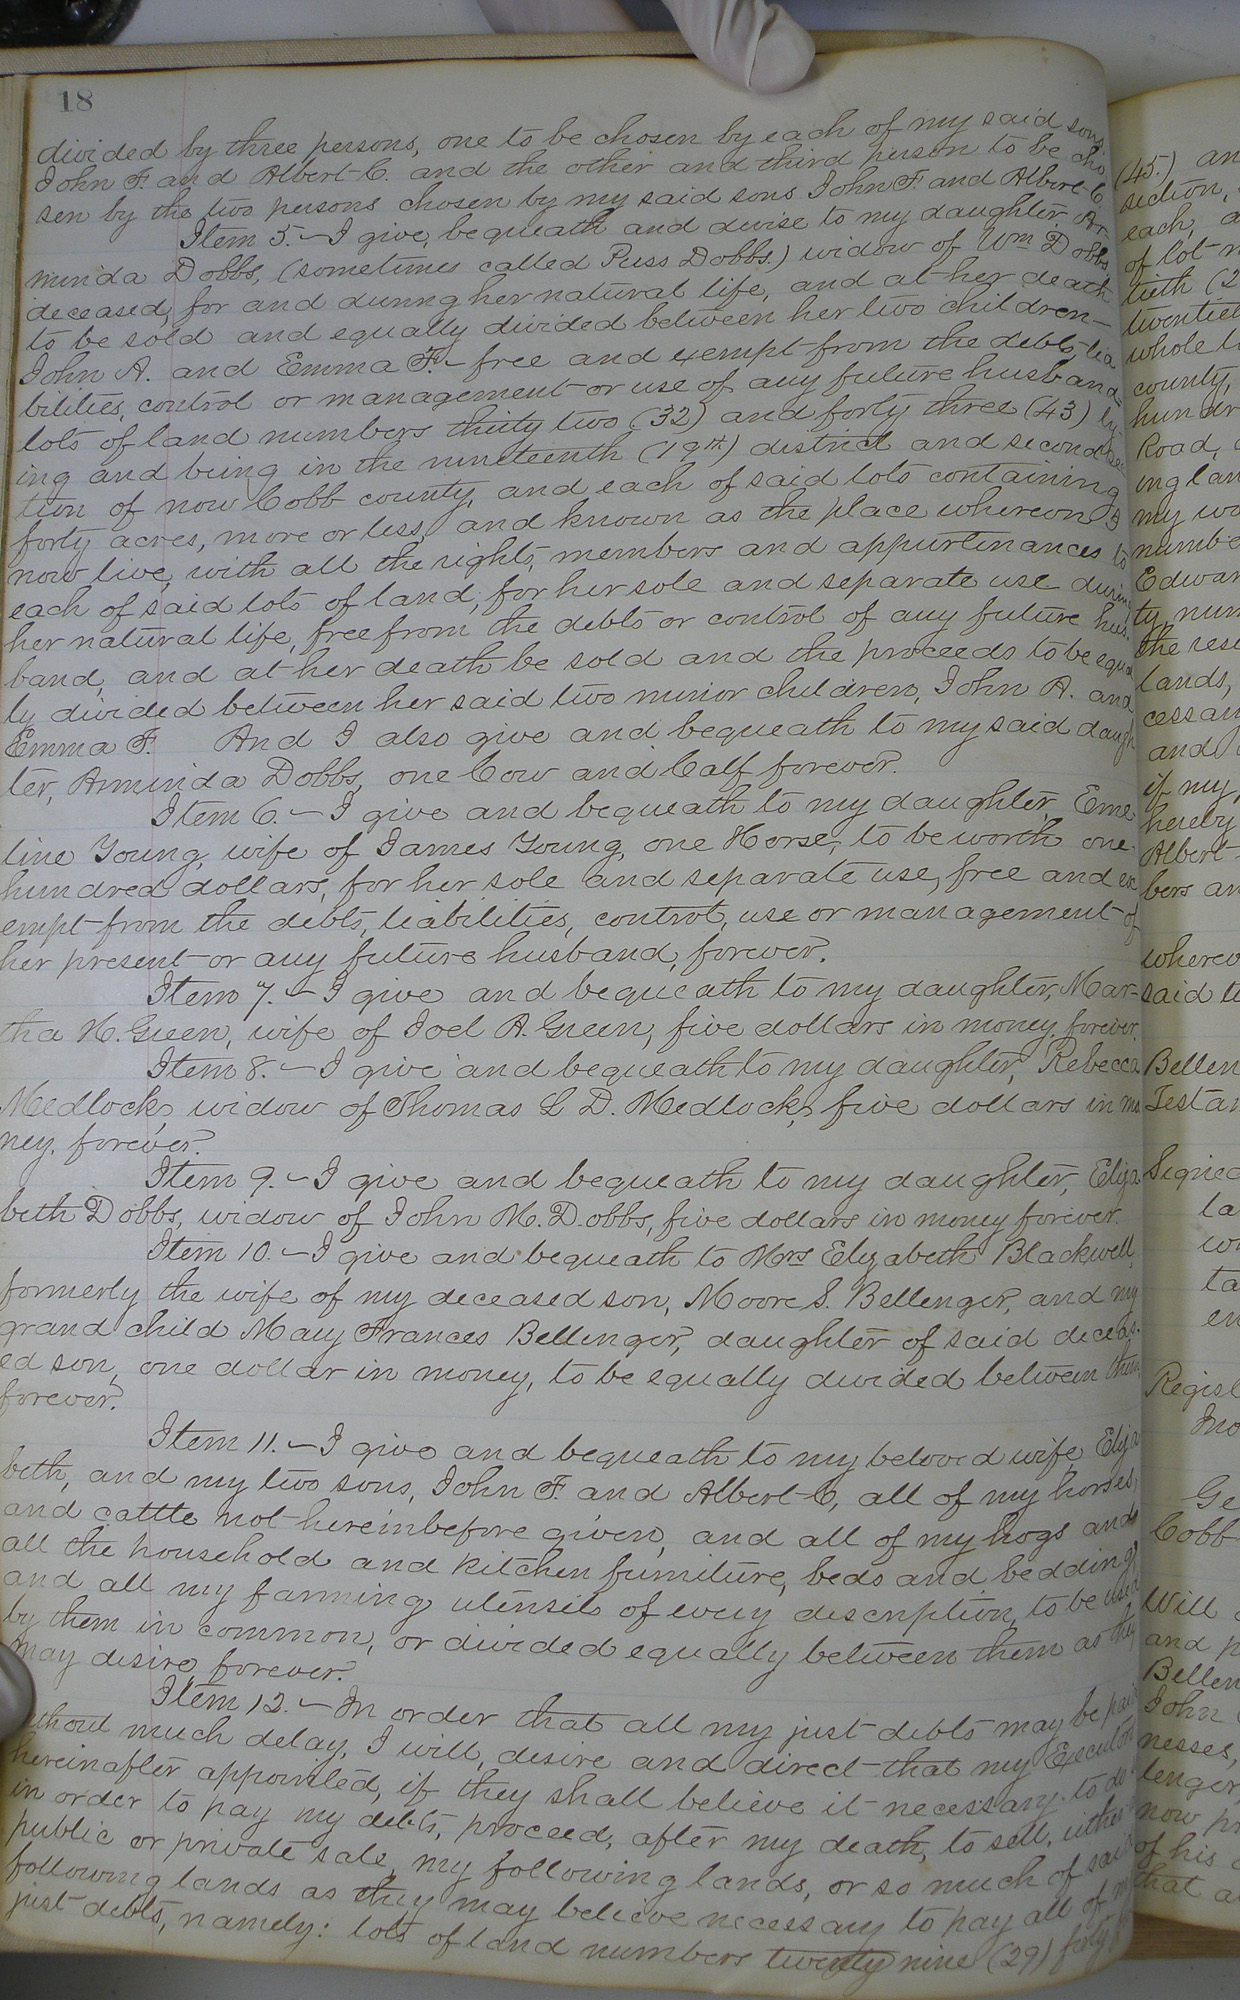 18
divided by three persons, one to be chosen by each of my said sons
John F. and Albert C. and the other and third person to be cho
sen by the two persons chosen by my said sons John F. and Albert C.
Item 5. - I give, bequeath and devise to my daughter Ar-
minda Dobbs, (sometimes called Puss Dobbs.) widow of Wm Dobbs
deceased, for and during her natural life, and at her death
to be sold and equally divided between her two children -
John A. and Emma F. - free and exempt from the debts, lia
bilities, control or management or use of any future husband =
lots of land numbers thirty two (32) and forty three (43) ly
ing and being in the nineteenth (19th) district and second sec
tion of now Cobb county, and each of said lots containing
forty acres, more or less, and known as the place whereon I
now live, with all the rights, members and appurtinances to
each of said lots of land, for her sole and separate use during
her natural life, free from the debts or control of any future hus-
band, and at her death be sold and the proceeds to be equal
ly divided between her said two minor children, John A. and
Emma F. And I also give and bequeath to my said daugh
ter, Arminda Dobbs, one Cow and Calf forever.
Item 6. - I give and bequeath to my daughter, Eme
line Young, wife of James Young, one Horse, to be worth one
hundred dollars, for her sole and separate use, free and ex
empt from the debts, liabilities, control, use or management of
her present or any future husband, forever.
Item 7. - I give and bequeath to my daughter, Mar-
tha H. Green, wife of Joel A. Green, five dollars in money, forever.
Item 8. - I give and bequeath to my daughter, Rebecca
Medlock, widow of Thomas L D. Medlock, five dollars in mo
ney, forever.
Item 9. - I give and bequeath to my daughter, Eliza
beth Dobbs, widow of John M. Dobbs, five dollars in money forever.
Item 10. - I give and bequeath to Mrs Elizabeth Blackwell,
formerly the wife of my deceased son, Moore S. Bellenger, and my
grand child Mary Frances Bellenger, daughter of said deceas-
ed son, one dollar in money, to be equally divided between them,
forever.
Item 11. - I give and bequeath to my beloved wife, Eliza
beth, and my two sons, John F. and Albert C, all of my horses,
and cattle not hereinbefore given, and all of my hogs and
all the household and kitchen furniture, beds and bedding,
and all my farming utensils of every description, to be used
by them in common, or divided equally between them as they
may desire, forever.
Item 12. - In order that all my just debts may be paid
without much delay, I will, desire and direct that my Executors
hereinafter appointed, if they shall believe it necessary to do
in order to pay my debts, proceed, after my death, to sell, either
public or private sale, my following lands, or so much of said
following lands as they may believe necessary to pay all of my
just debts, namely: lots of land numbers twenty nine (29) forty
(45.) an
section,
each, a
of lot n
tieth (2
twentiet
whole
county,
hundr
Road,
ing lan
my wo
numbe
Edwar
ty, num
the resi
lands,
cessary
and
if my
hereby
Albert
bers an
whereo
said
Bellen
Testa
Signed
la
wi
ta
en
Regist
Ge
Cobb
Will
and p
Bellen
John
nesses,
lenger,
now pr
of his
that a